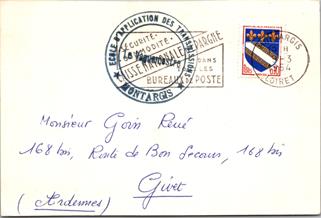 ECOLE D'APPLICATION DES TRANSMISSIONS
MONTARGIS
SÉCURITÉ
CAISSE NATIONALE D'ÉPARGNE
DANS
LES
BUREAUX DE POSTE
LOIRET
Monsieur Goin René
168 bis, Route de Bon Secours, 168 bis
Givet
(Ardennes)